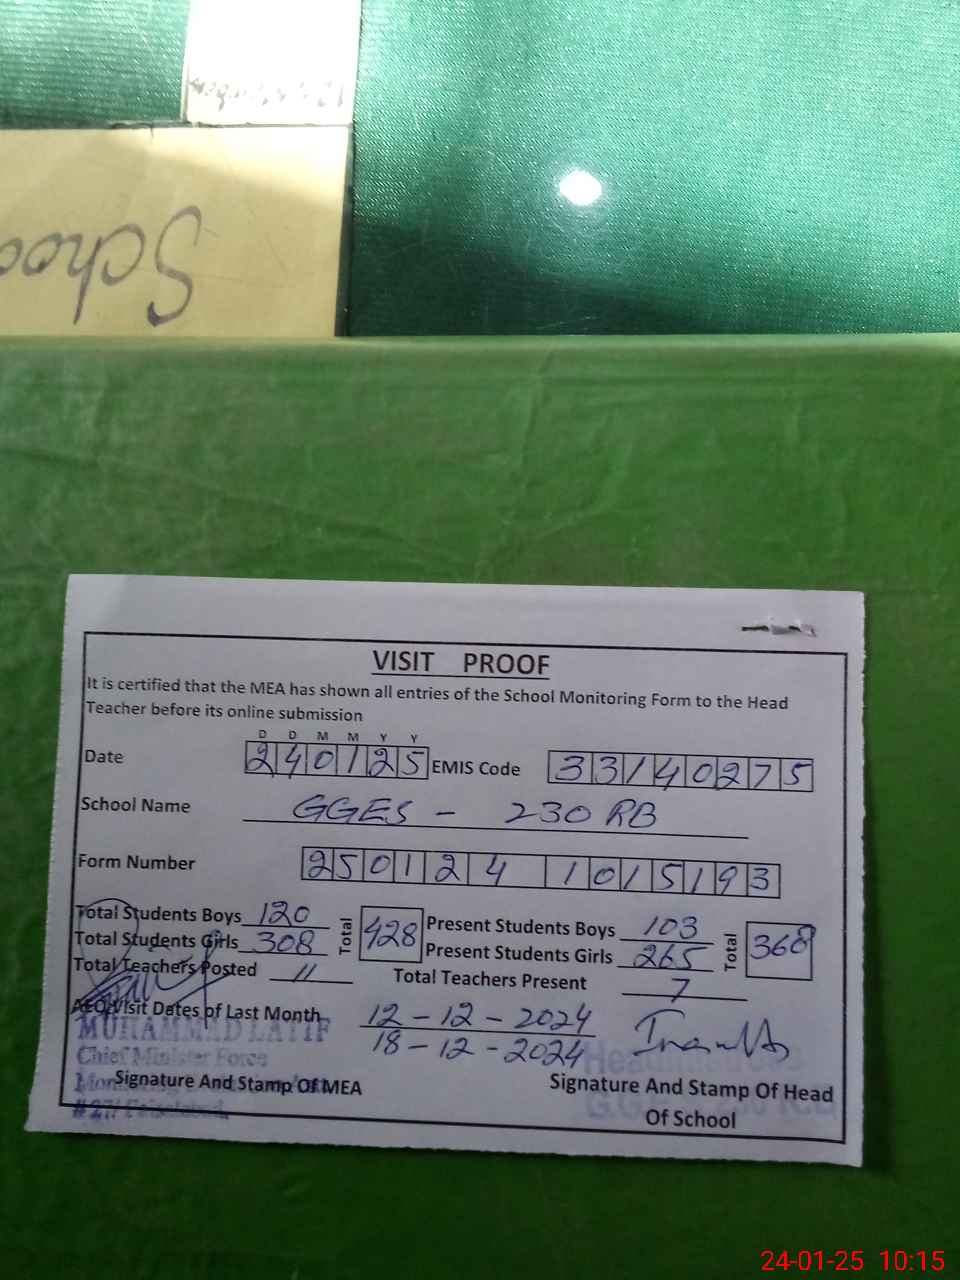 School
VISIT PROOF
It is certified that the MEA has shown all entries of the School Monitoring Form to the Head
Teacher before its online submission
D D M M Y Y
Date 240125 EMIS Code 33140275
School Name GGES - 230 RB
Form Number 250124 1015193
Total Students Boys 120 Total 428 Present Students Boys 103 Total 368
Total Students Girls 308 Present Students Girls 265
Total Teachers Posted 11 Total Teachers Present 7
AEO Visit Dates of Last Month 12-12-2024
18-12-2024
MUHAMMAD LATIF
Chief Minister Force
Signature And Stamp Of MEA
#27/ Faisalabad
Signature And Stamp Of Head
Of School
24-01-25 10:15